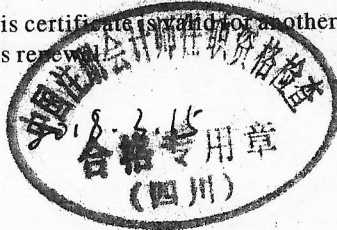 is certificate is valid for another
s renewal.
中国注册会计师任职资格检查
合格专用章
(四川)